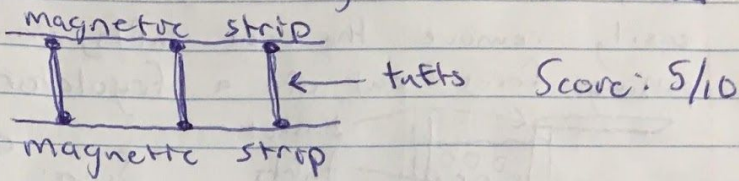 magnetic strip
tufts Score: 5/10
magnetic strip